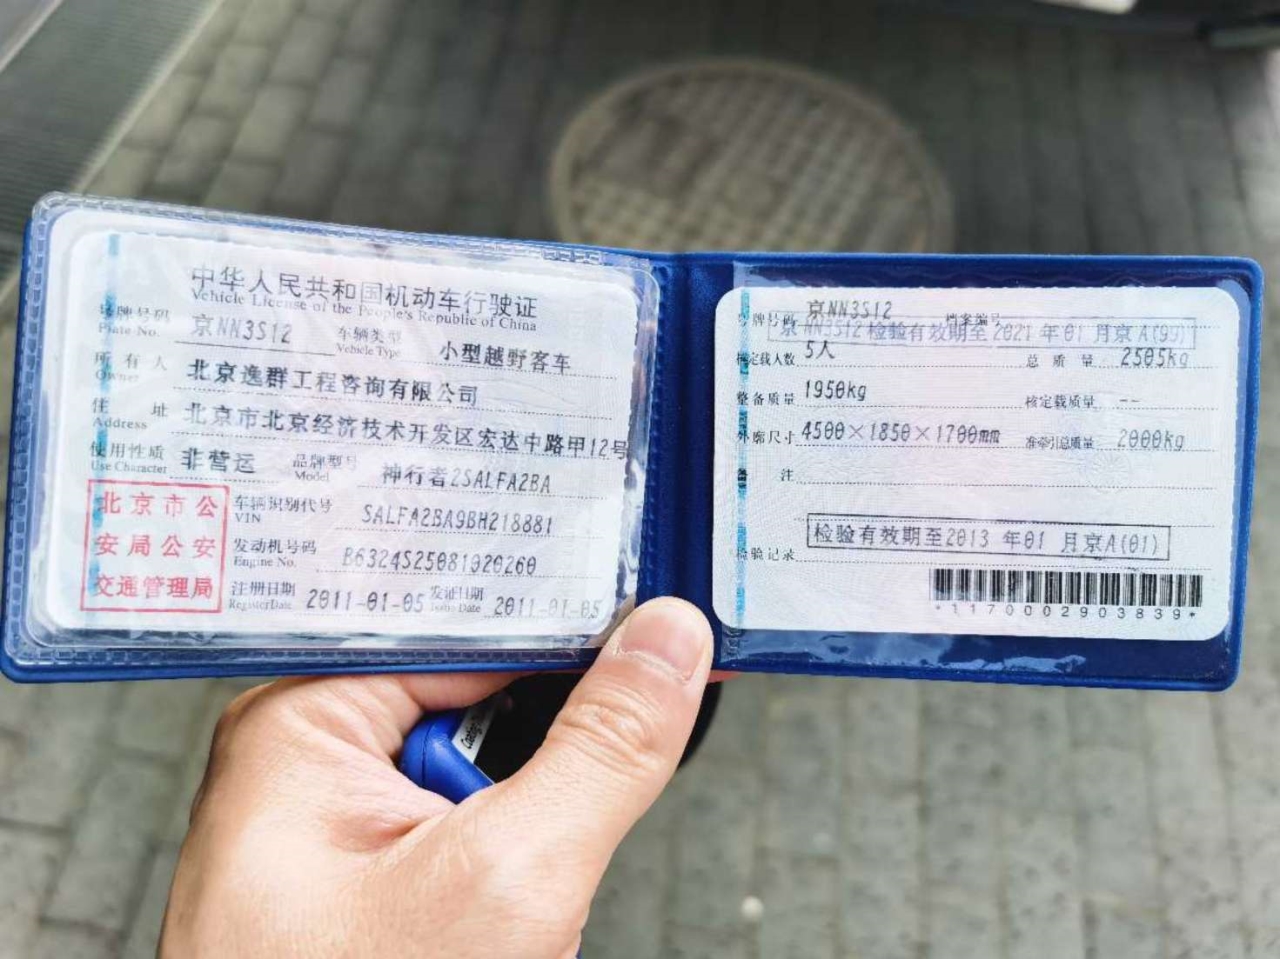 中华人民共和国机动车行驶证
Vehicle License of the People's Republic of China
号牌号码 京NN3S12 车辆类型 小型越野客车
Plate No. Vehicle Type
所有人 北京逸群工程咨询有限公司
Owner
住址 北京市北京经济技术开发区宏达中路甲12号
Address
使用性质 非营运 品牌型号 神行者2SALFA2BA
Use Character Model
北京市公
安局公安
交通管理局
车辆识别代号 SALFA2BA9BH218881
VIN
发动机号码 B6324S25081020260
Engine No.
注册日期 2011-01-05 发证日期 2011-01-05
Register Date Issue Date
号牌号码 京NN3S12 档案编号
京NN3S12 检验有效期至2021年01月京A(99)
核定载人数 5人 总质量 2505kg
整备质量 1950kg 核定载质量 --
外廓尺寸 4500×1850×1700mm 准牵引总质量 2000kg
备注
检验有效期至2013年01月京A(01)
检验记录
*1170002903839*